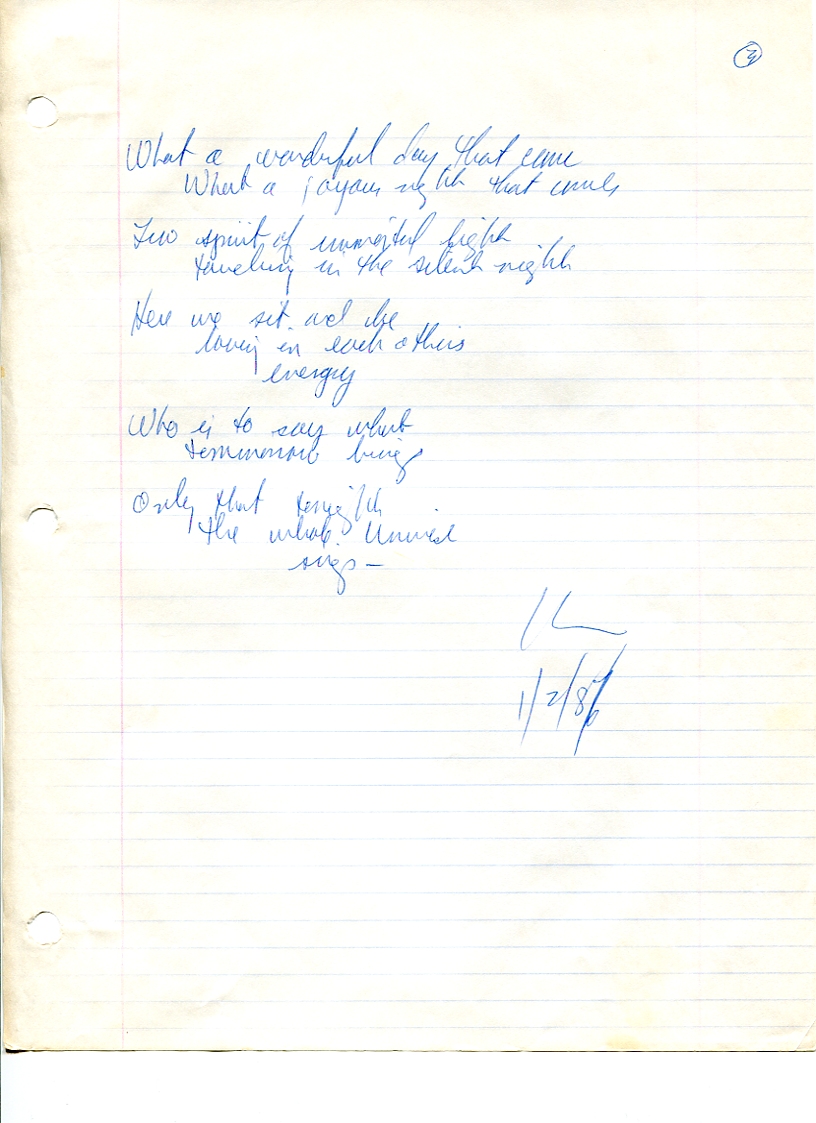 What a wonderful day that came
What a joyous night that comes
Two spirit of immortal light
traveling in the silent night
Here we sit and be
loving in each others
energy
Who is to say what
tommorow brings
Only that tonight
the whole Universe
sings —
1/2/86